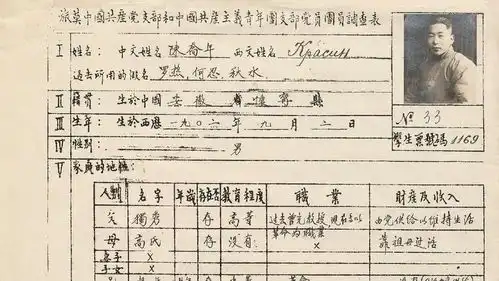 旅莫中國共產党支部和中國共產主義青年團支部党員團員調查表
I 姓名： 中文姓名 陳喬年 西文姓名 Красин
過去所用的假名 罗热 何忍 秋水
II 籍貫： 生於中國 安徽 省 懷寧 縣
III 生年： 生於西曆 一九〇二年 九月 二日
IV 性别： 男
V 家庭的地位：
№ 33
學生票號碼 1169
人數 名字 年歲 存在否 教育程度 職業 財産及收入
父 獨秀 存 高等 过去曾充教授，現在
革命为職業 由党供給以維持生活
母 高氏 存 没有 × 靠祖母过活
妻子 ×
子女 ×